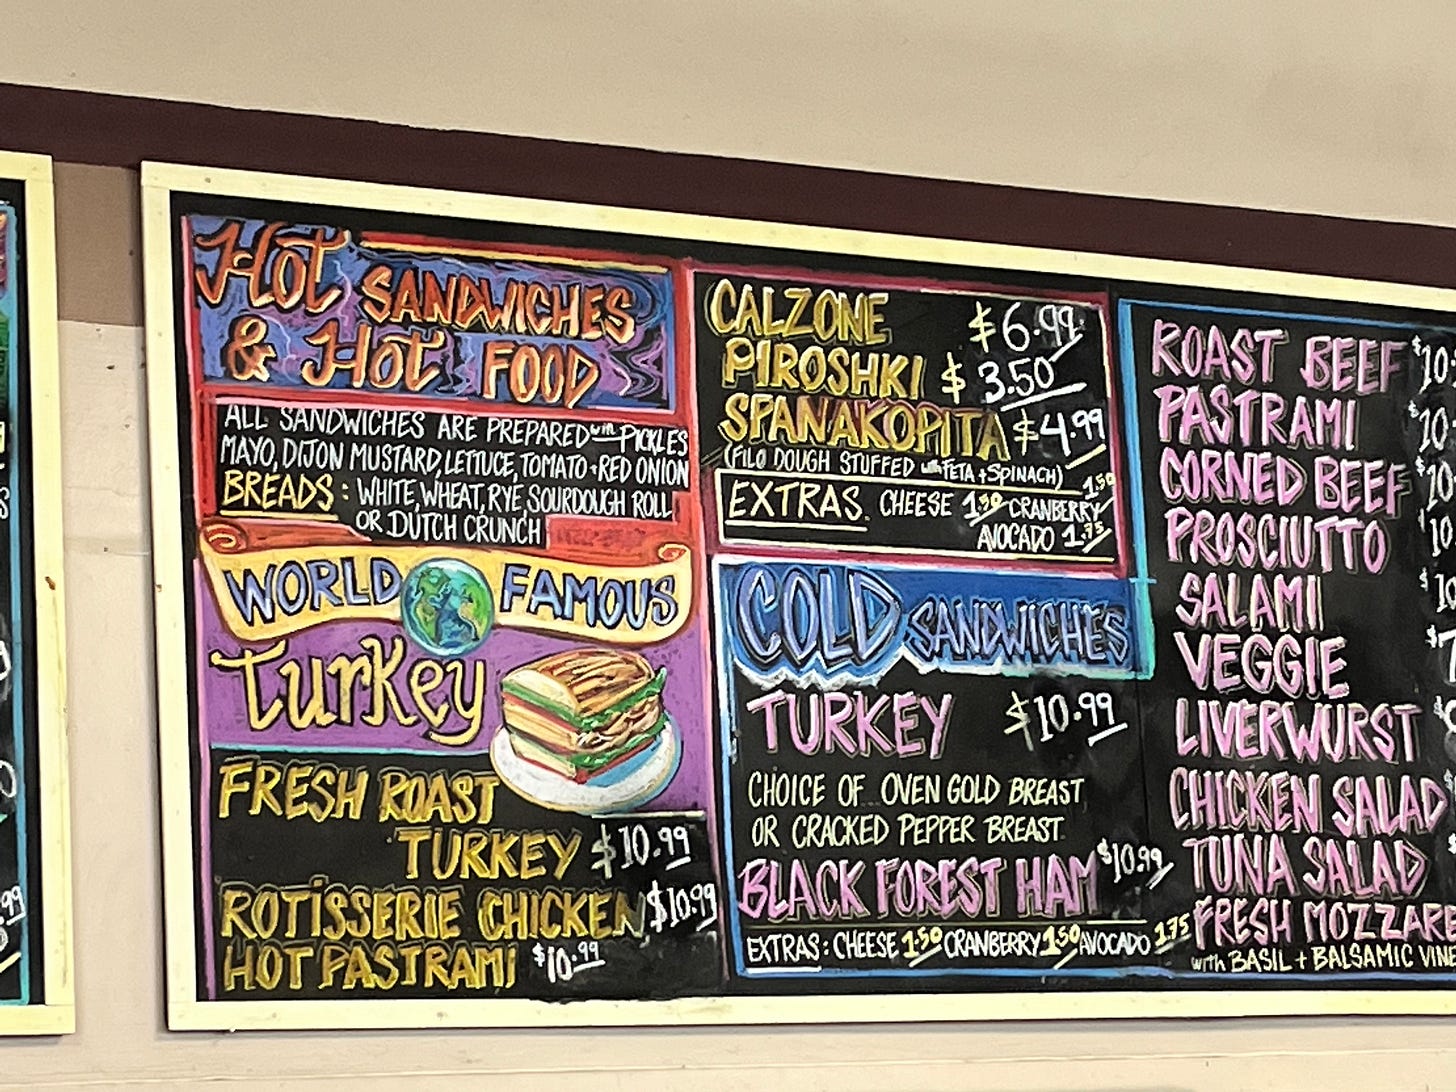 Hot SANDWICHES
& Hot FOOD
ALL SANDWICHES ARE PREPARED with PICKLES
MAYO, DIJON MUSTARD, LETTUCE, TOMATO + RED ONION
BREADS: WHITE, WHEAT, RYE, SOURDOUGH ROLL
OR DUTCH CRUNCH
WORLD FAMOUS
Turkey
FRESH ROAST
TURKEY $10.99
ROTISSERIE CHICKEN $10.99
HOT PASTRAMI $10.99
CALZONE $6.99
PIROSHKI $3.50
SPANAKOPITA $4.99
(FILO DOUGH STUFFED with FETA + SPINACH)
EXTRAS. CHEESE 1.50 CRANBERRY 1.50
AVOCADO 1.75
COLD SANDWICHES
TURKEY $10.99
CHOICE OF OVEN GOLD BREAST
OR CRACKED PEPPER BREAST
BLACK FOREST HAM $10.99
EXTRAS: CHEESE 1.50 CRANBERRY 1.50 AVOCADO 1.75
ROAST BEEF $10.
PASTRAMI
CORNED BEEF
PROSCIUTTO
SALAMI
VEGGIE
LIVERWURST
CHICKEN SALAD
TUNA SALAD
FRESH MOZZAR
with BASIL + BALSAMIC VINE